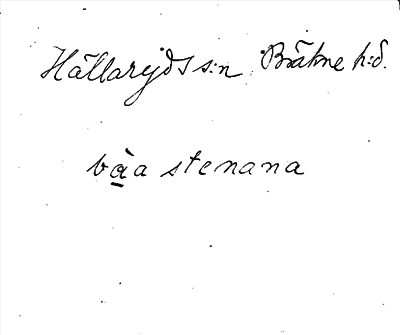 Hällaryds s:n Bräkne h:d.
bà̱a stenana